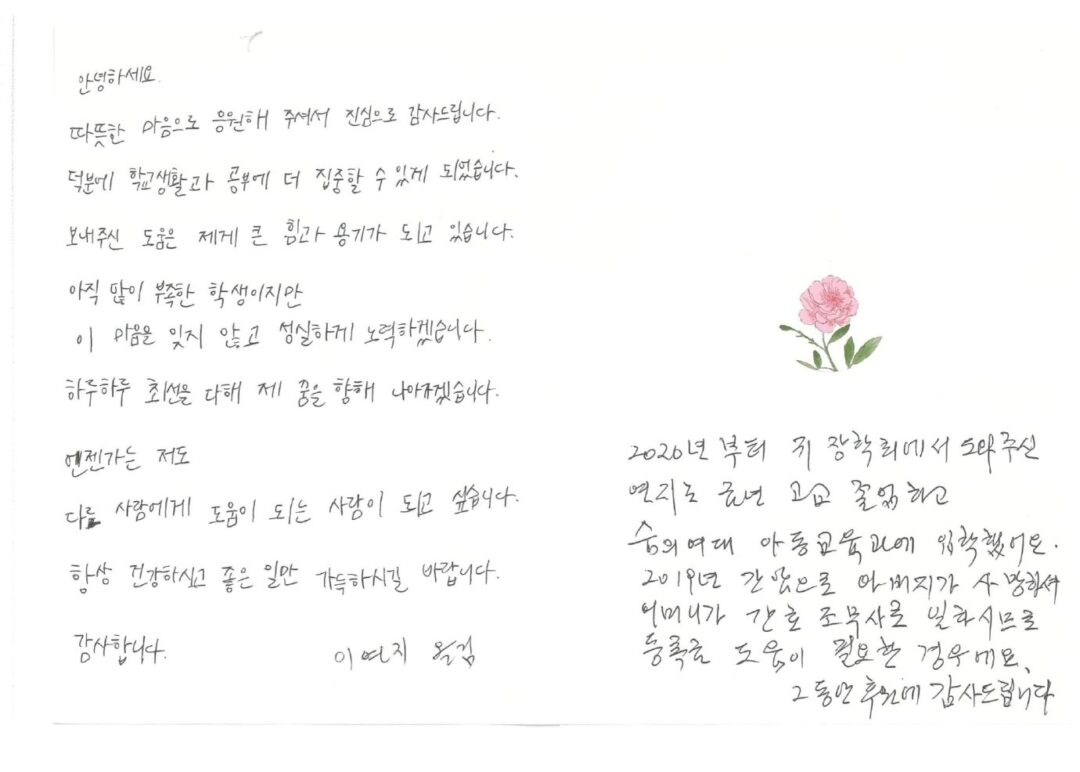 안녕하세요.
따뜻한 마음으로 응원해 주셔서 진심으로 감사드립니다.
덕분에 학교생활과 공부에 더 집중할 수 있게 되었습니다.
보내주신 도움은 제게 큰 힘과 용기가 되고 있습니다.
아직 많이 부족한 학생이지만
이 마음을 잊지 않고 성실하게 노력하겠습니다.
하루하루 최선을 다해 제 꿈을 향해 나아가겠습니다.
언젠가는 저도
다른 사람에게 도움이 되는 사람이 되고 싶습니다.
항상 건강하시고 좋은 일만 가득하시길 바랍니다.
감사합니다. 이연지 올림
2020년 부터 귀 장학회에서 도와주신
연지는 금년 고교 졸업하고
숭의여대 아동교육과에 입학했어요.
2019년 간암으로 아버지가 사망하셔
어머니가 간호 조무사로 일하시므로
등록금 도움이 필요한 경우에요.
그동안 후원에 감사드립니다